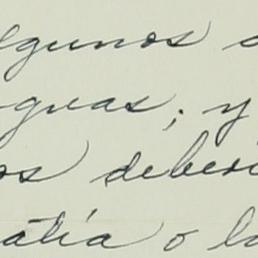 algunos
guas; y
os deberi
atía o la